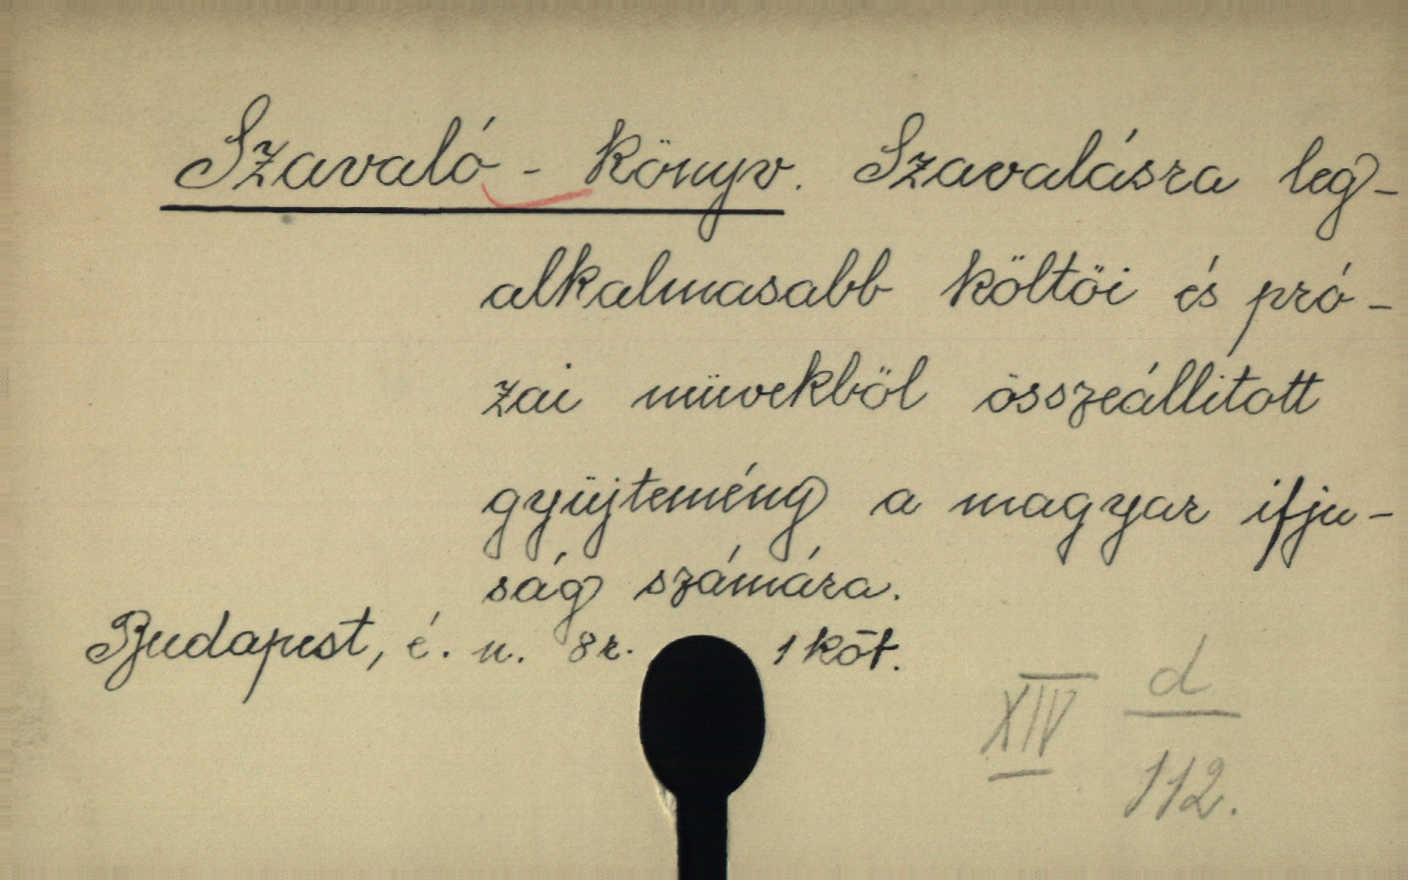 Szavaló - könyv. Szavalásra leg-
alkalmasabb költöi és pró-
zai müvekböl összeállitott
gyüjtemény a magyar ifju-
ság számára.
Budapest, é. n. 8r. 1 köt.
XIV d/112.